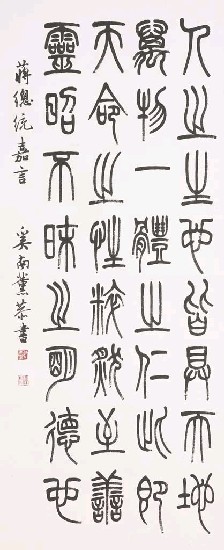 人之生也皆具天地
萬物一體之仁此即
天命之性粹然至善
靈昭不昧之明德也
蔣總統嘉言
奚南薰恭書